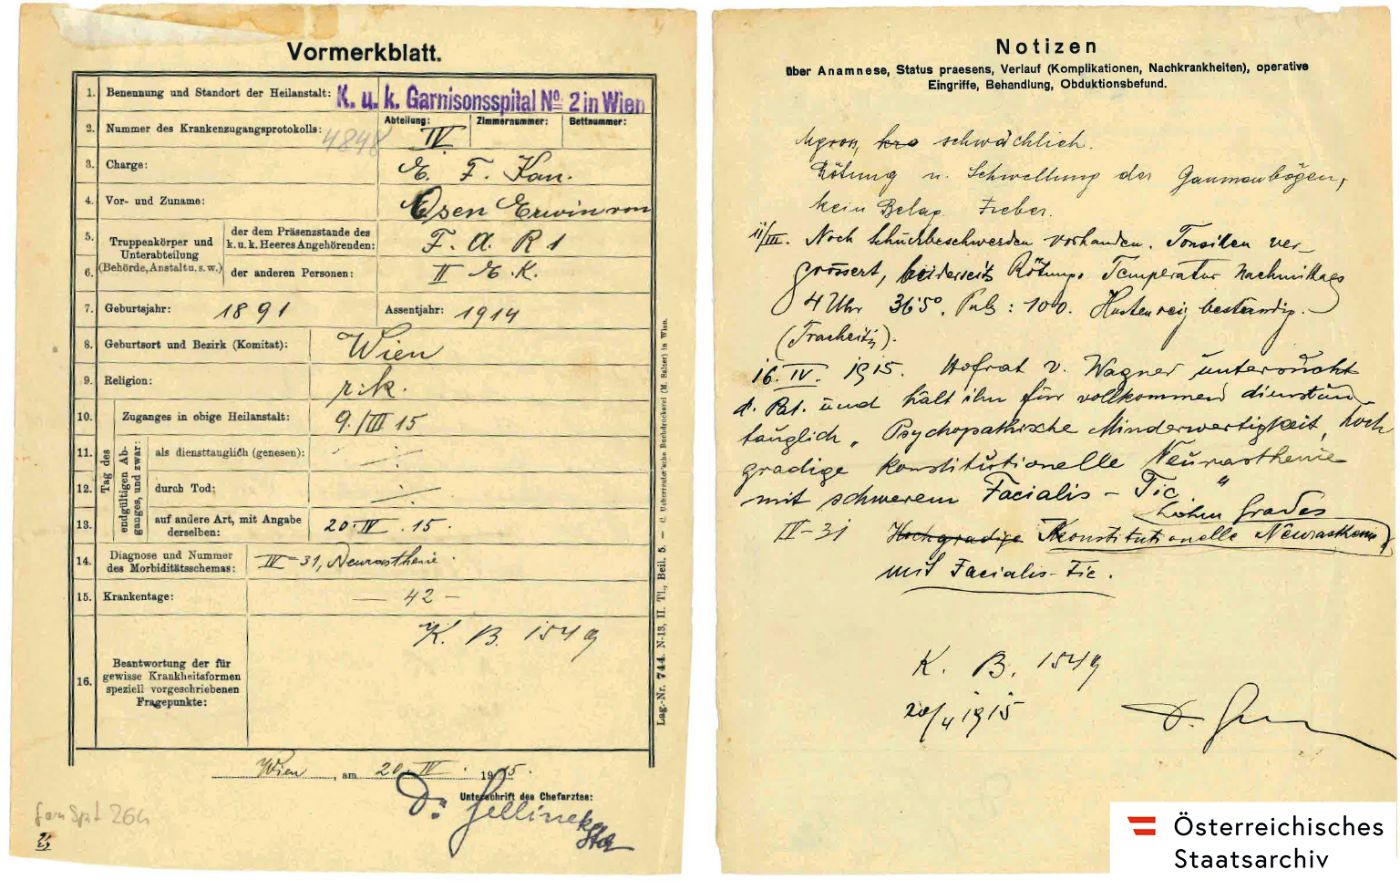 Vormerkblatt.
1. Benennung und Standort der Heilanstalt: K. u. k. Garnisonsspital No 2 in Wien
2. Nummer des Krankenzugangsprotokolls: 4848 Abteilung: IV Zimmernummer: Bettnummer:
3. Charge: E. F. Kan.
4. Vor- und Zuname: Osen Erwin von
Truppenkörper und Unterabteilung (Behörde, Anstalt u. s. w.)
5. der dem Präsenzstande des k. u. k. Heeres Angehörenden: F. A. R 1
6. der anderen Personen: II E. K.
7. Geburtsjahr: 1891 Assentjahr: 1914
8. Geburtsort und Bezirk (Komitat): Wien
9. Religion: r. k.
Tag des
10. Zuganges in obige Heilanstalt: 9./III 15
endgültigen Abganges, und zwar:
11. als diensttauglich (genesen):
12. durch Tod:
13. auf andere Art, mit Angabe derselben: 20. IV. 15.
14. Diagnose und Nummer des Morbiditätsschemas: IV-31, Neurasthenie.
15. Krankentage: — 42 —
16. Beantwortung der für gewisse Krankheitsformen speziell vorgeschriebenen Fragepunkte: K. B. 1549
Wien, am 20. IV. 1915.
Unterschrift des Chefarztes:
Dr. Gellinek
Garn Spit 26
Lag.-Nr. 744. N-13, II. Tl., Beil. 5.
Notizen
über Anamnese, Status praesens, Verlauf (Komplikationen, Nachkrankheiten), operative
Eingriffe, Behandlung, Obduktionsbefund.
schwächlich.
Rötung u. Schwellung der Gaumenbögen,
kein Belag Fieber.
11/III. Noch Schluckbeschwerden vorhanden. Tonsilen ver-
grössert, beiderseits Rötung. Temperatur Nachmittags
4 Uhr 36·5°. Puls: 100. Hustenreiz beständig.
(Tracheitis).
16. IV. 1915. Hofrat v. Wagner untersucht
d. Pat. und hält ihn für vollkommen dienstun-
tauglich. Psychopathische Minderwertigkeit, hoch
gradige konstitutionelle Neurasthenie
mit schwerem Facialis-Tic."
hohen Grades
IV-31 Hochgradige Konstitutionelle Neurasthenie
mit Facialis-Tic.
K. B. 1549
20/4 1915
Österreichisches
Staatsarchiv